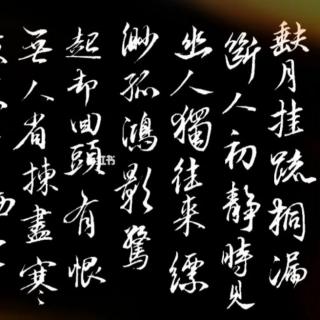 缺月挂疏桐漏
斷人初靜時見
幽人獨往來縹
渺孤鴻影驚
起却回頭有恨
無人省揀盡寒